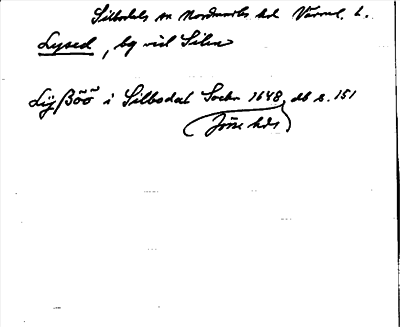 Silbodals sn Nordmarks hd Värml. l.
Lysed, by vid Silen
Lÿßöö i Silbodal Sochn 1648, db s. 151
Jösse hds